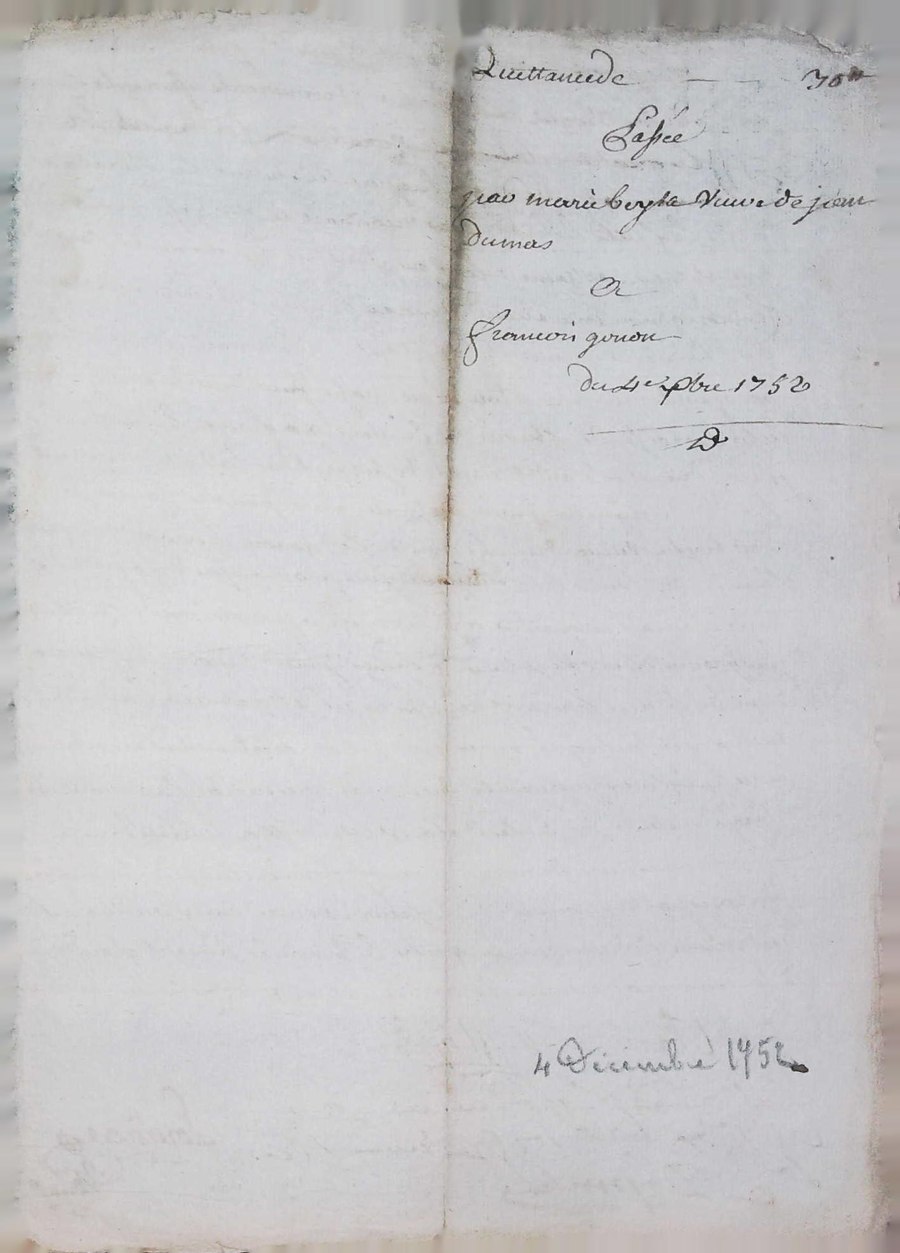 Quittance de — — 70ᵗᵗ
Passée
par marie veuve de jean
dumas
A
francois gonon
du 4e xbre 1752
D
4 Décembre 1752